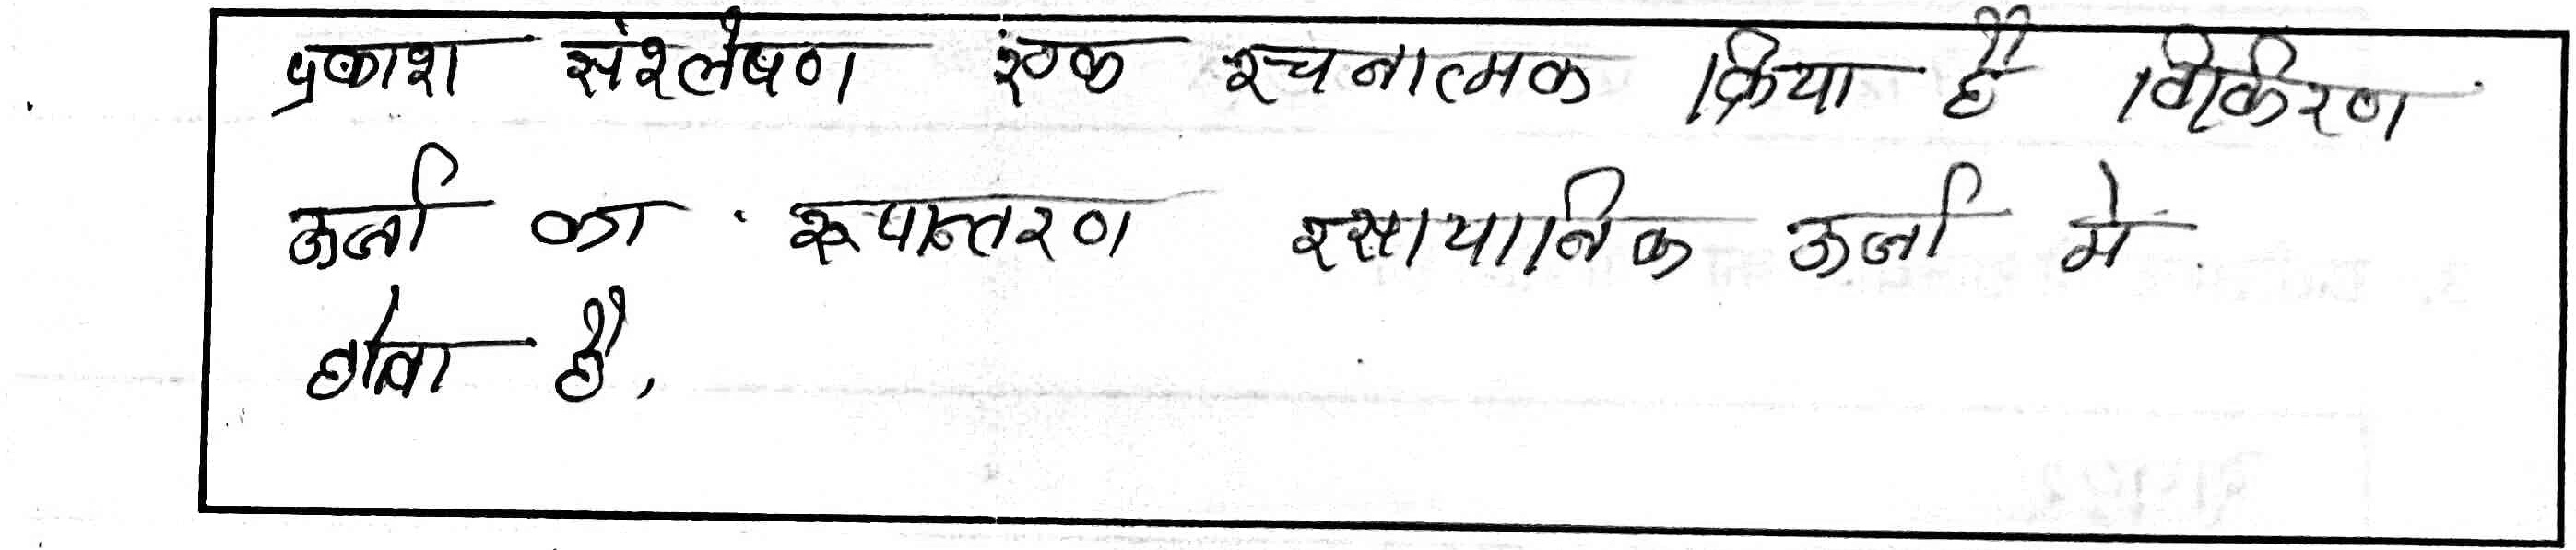 प्रकाश संश्लेषण एक रचनात्मक क्रिया है विकिरण
ऊर्जा का रूपान्तरण रसायानिक ऊर्जा मे
होता है,